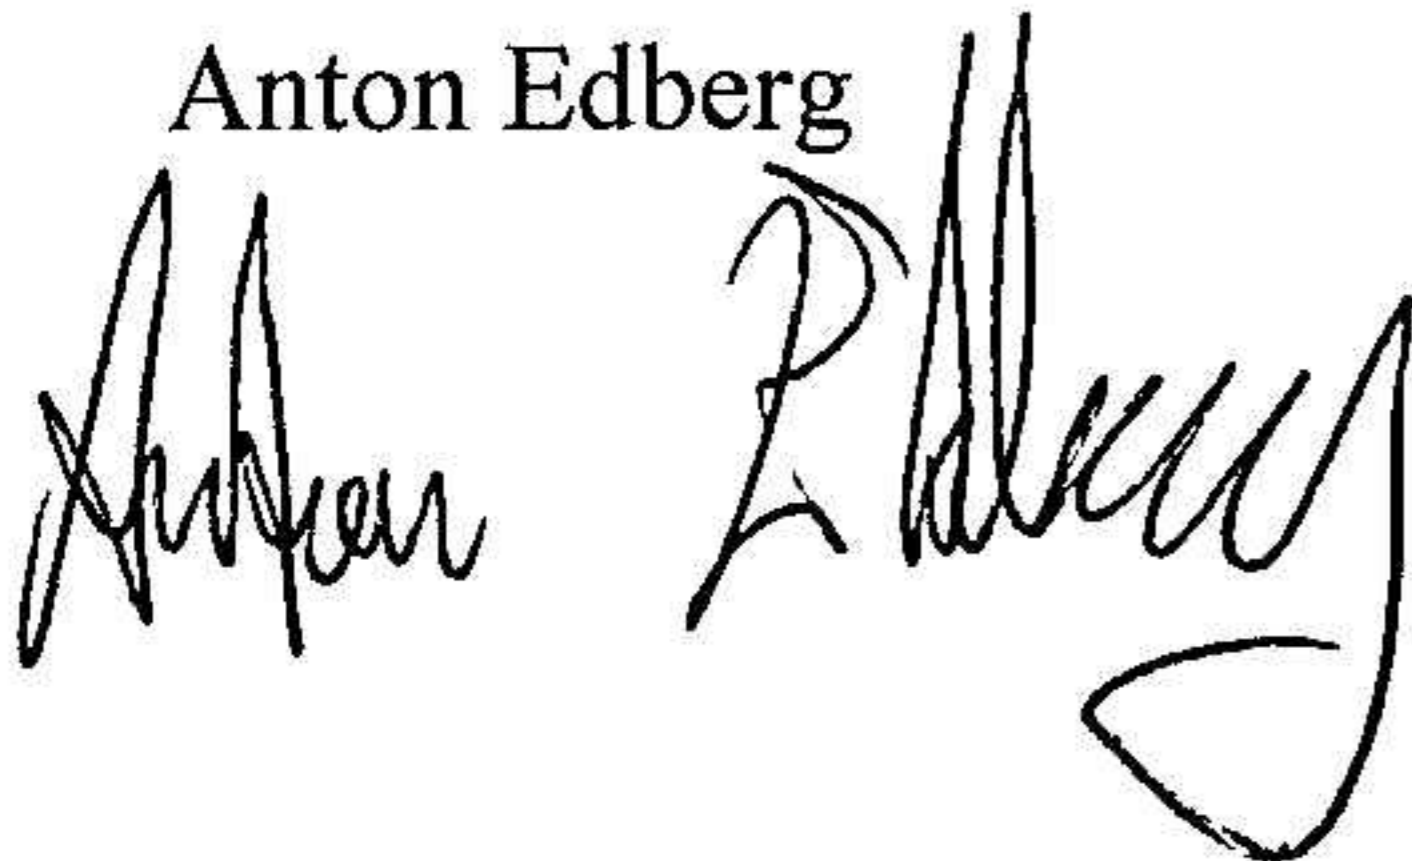 Anton Edberg
Anton Edberg